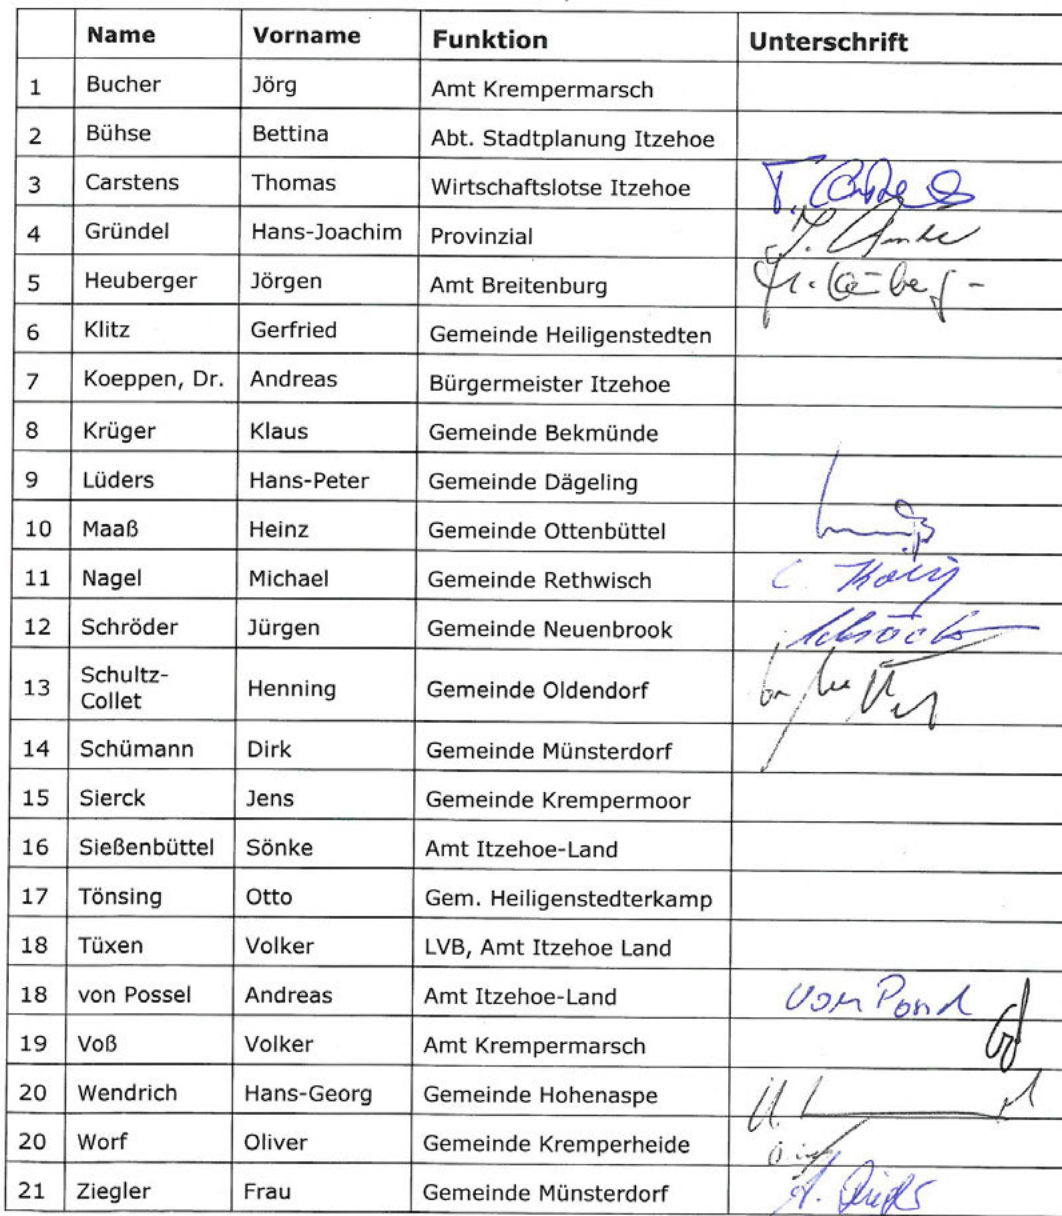 Name Vorname Funktion Unterschrift
1 Bucher Jörg Amt Krempermarsch
2 Bühse Bettina Abt. Stadtplanung Itzehoe
3 Carstens Thomas Wirtschaftslotse Itzehoe
4 Gründel Hans-Joachim Provinzial
5 Heuberger Jörgen Amt Breitenburg
6 Klitz Gerfried Gemeinde Heiligenstedten
7 Koeppen, Dr. Andreas Bürgermeister Itzehoe
8 Krüger Klaus Gemeinde Bekmünde
9 Lüders Hans-Peter Gemeinde Dägeling
10 Maaß Heinz Gemeinde Ottenbüttel
11 Nagel Michael Gemeinde Rethwisch
12 Schröder Jürgen Gemeinde Neuenbrook
13 Schultz-
Collet Henning Gemeinde Oldendorf
14 Schümann Dirk Gemeinde Münsterdorf
15 Sierck Jens Gemeinde Krempermoor
16 Sießenbüttel Sönke Amt Itzehoe-Land
17 Tönsing Otto Gem. Heiligenstedterkamp
18 Tüxen Volker LVB, Amt Itzehoe Land
18 von Possel Andreas Amt Itzehoe-Land
19 Voß Volker Amt Krempermarsch
20 Wendrich Hans-Georg Gemeinde Hohenaspe
20 Worf Oliver Gemeinde Kremperheide
21 Ziegler Frau Gemeinde Münsterdorf